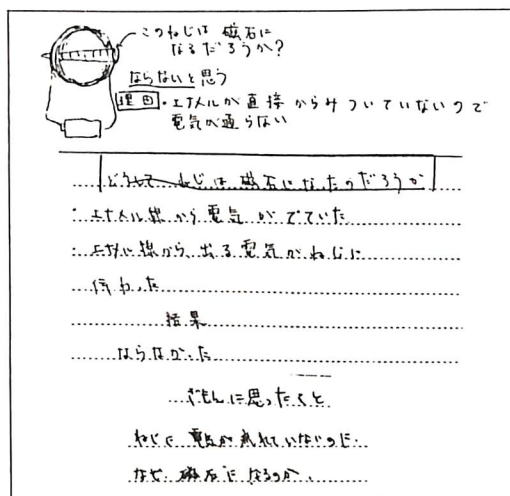 このねじは 磁石に
なるだろうか?
ならないと思う
理由・エナメルが直接からみついていないので
電気が通らない
どうして ねじは 磁石になったのだろうか
・エナメル線から電気がでていた
・エナメル線から、出る電気がねじに
伝わった
結果
ならなかった
ぎもんに思ったこと
ねじに 電気が流れていないのに、
なぜ、磁石になるのか、